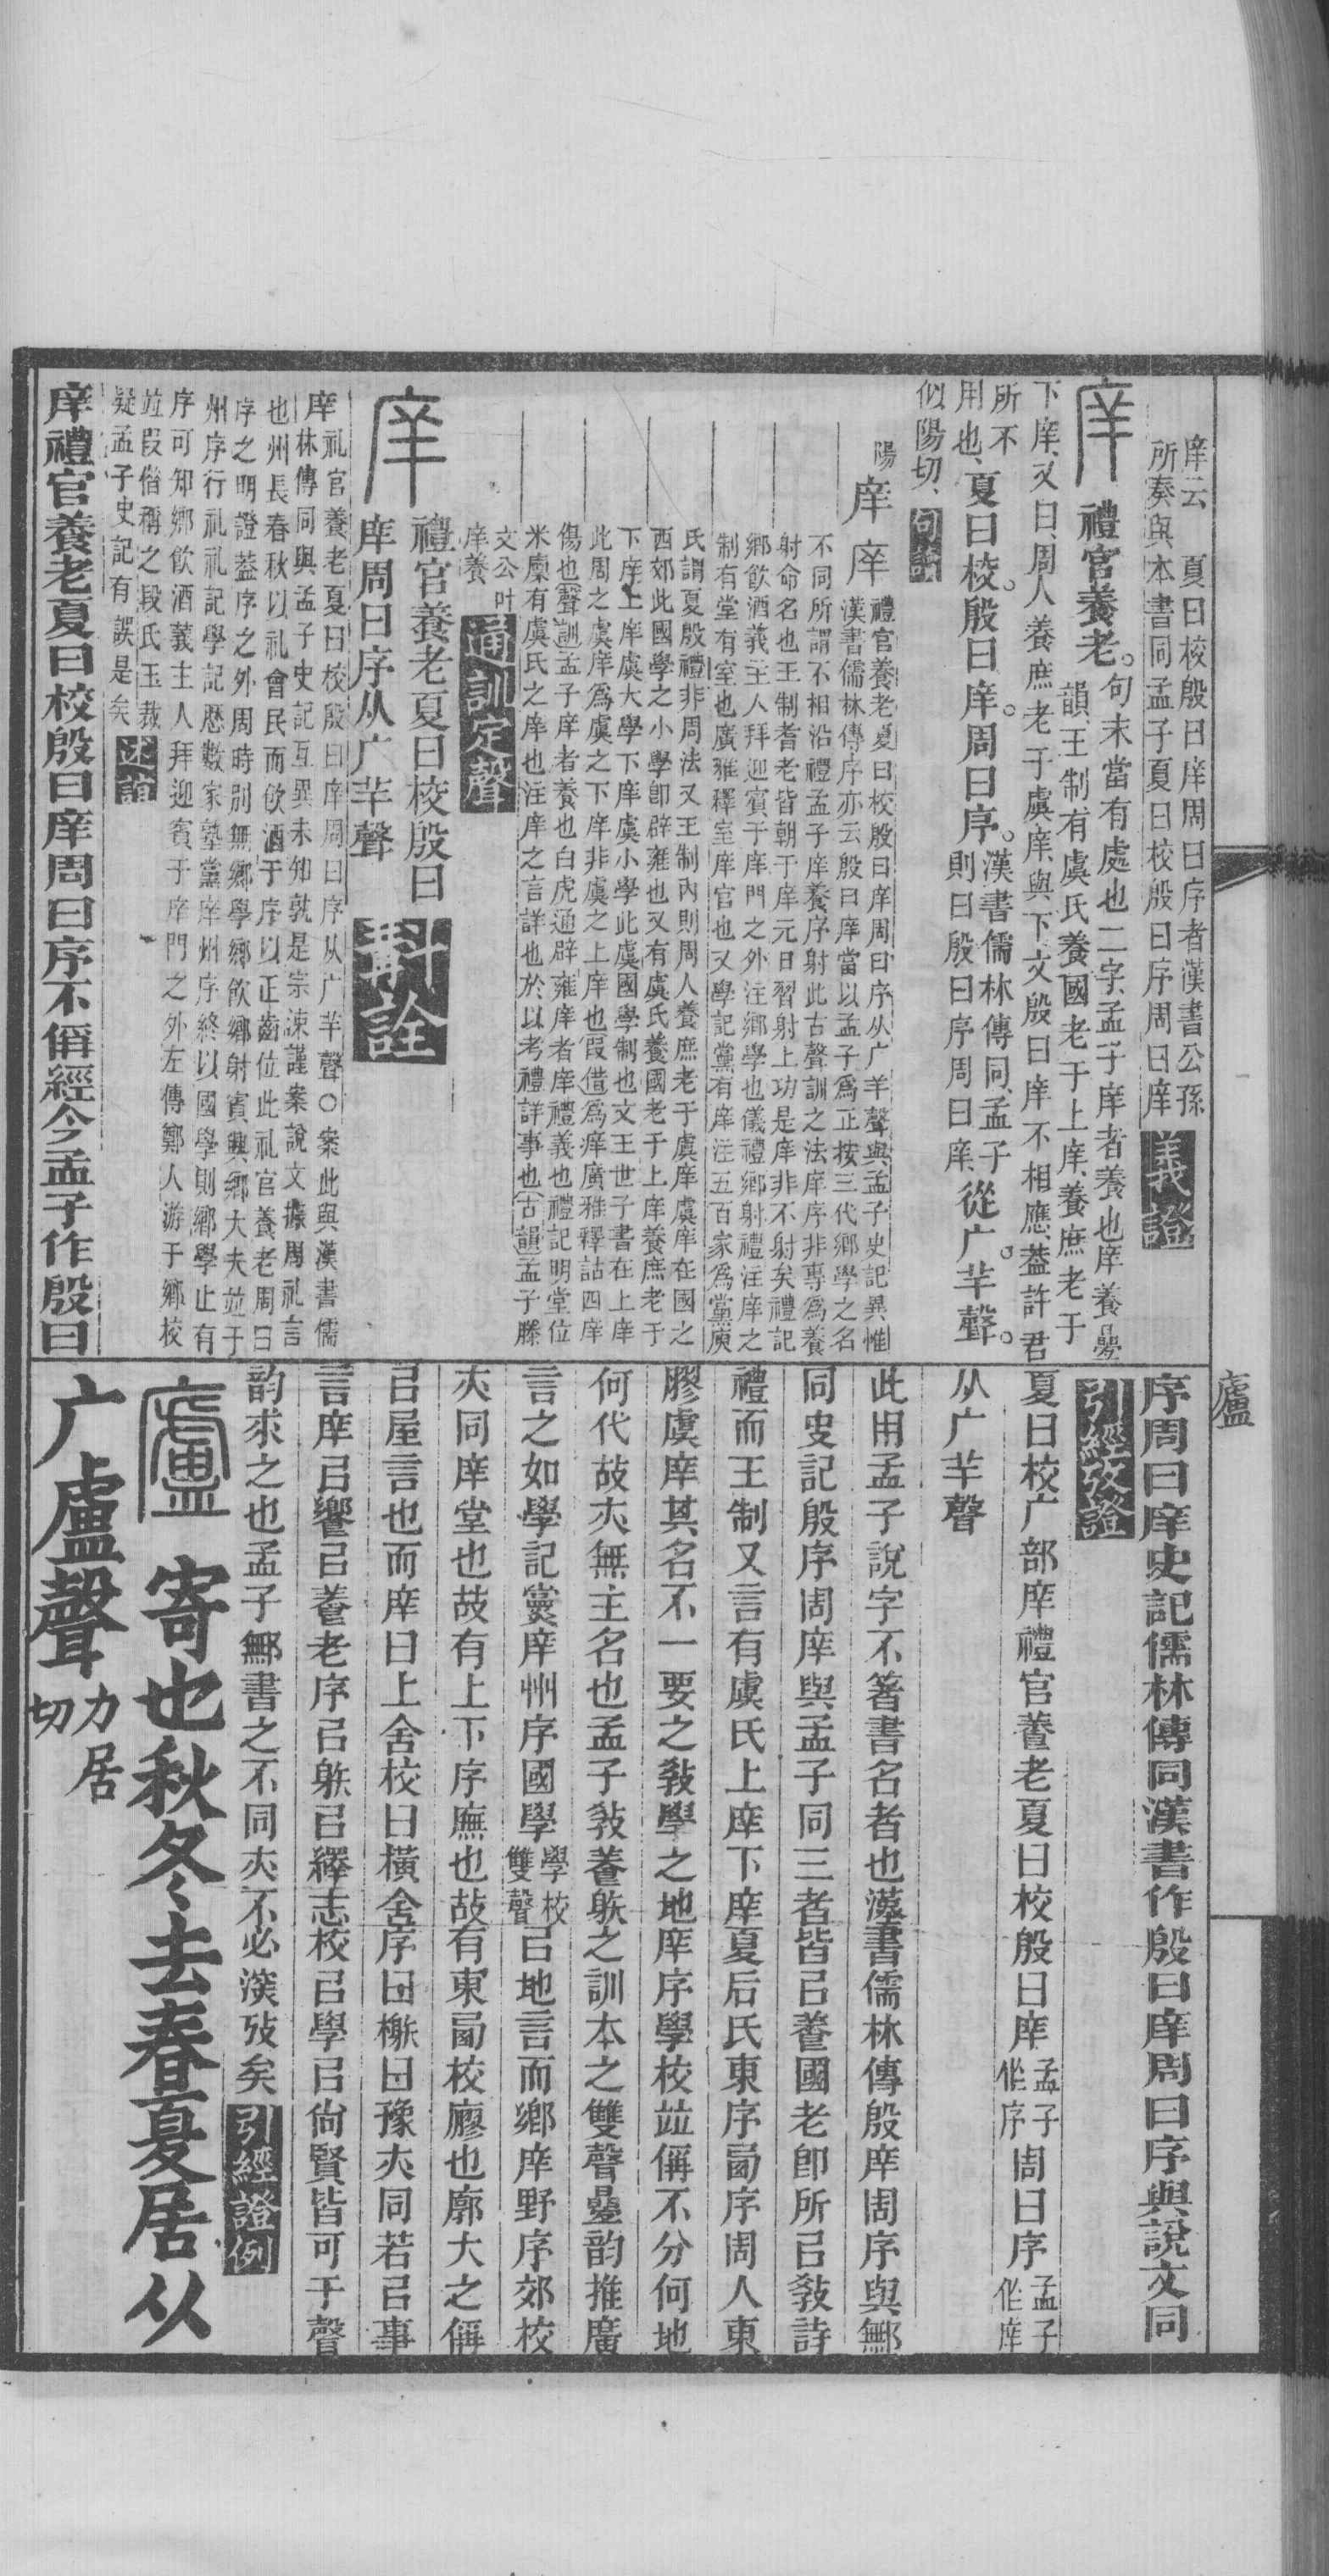 庠云　夏曰校殷曰庠周曰序者漢書公孫
所奏與本書同孟子夏曰校殷曰序周曰庠
義證
庠
禮官養老。
句末當有處也二字孟子庠者養也庠養曡
韻、王制有虞氏養國老于上庠、養庶老于
下庠、又曰、周人養庶老于虞庠、與下文殷曰庠不相應、葢許君
所不
用也、
夏曰校。殷曰庠。周曰序。
漢書儒林傳同、孟子
則曰殷曰序周曰庠、
從广。羊聲。
似陽切、
句讀
陽
庠
庠
禮官養老夏曰校殷曰庠周曰序从广羊聲與孟子史記異惟
漢書儒林傳序亦云殷曰庠當以孟子爲正按三代鄉學之名
不同所謂不相沿禮孟子庠養序射此古聲訓之法庠序非專爲養
射命名也王制耆老皆朝于庠元日習射上功是庠非不射矣禮記
鄉飲酒義主人拜迎賓于庠門之外注鄉學也儀禮鄉射禮注庠之
制有堂有室也廣雅釋室庠官也又學記黨有庠注五百家爲黨庾
氏謂夏殷禮非周法又王制內則周人養庶老于虞庠虞庠在國之
西郊此國學之小學卽辟雍也又有虞氏養國老于上庠養庶老于
下庠上庠虞大學下庠虞小學此虞國學制也文王世子書在上庠
此周之虞庠爲虞之下庠非虞之上庠也叚借爲痒廣雅釋詁四庠
傷也聲訓孟子庠者養也白虎通辟雍庠者庠禮義也禮記明堂位
米廩有虞氏之庠也注庠之言詳也於以考禮詳事也古韻孟子滕
文公叶
庠養
通訓定聲
庠
禮官養老夏曰校殷曰
庠周曰序从广羊聲
斠詮
庠禮官養老夏曰校殷曰庠周曰序从广羊聲○案此與漢書儒
林傳同與孟子史記互異未知孰是宗涑謹案說文據周礼言
也州長春秋以礼會民而飲酒于序以正齒位此礼官養老周曰
序之明證葢序之外周時別無鄉學鄉飲鄉射賓興鄉大夫竝于
州序行礼礼記學記歷數家塾黨庠州序終以國學則鄉學止有
序可知鄉飲酒義主人拜迎賓于庠門之外左傳鄭人游于鄉校
竝叚偕稱之段氏玉裁
疑孟子史記有誤是矣
述誼
庠禮官養老夏曰校殷曰庠周曰序不偁經今孟子作殷曰
廬
序周曰庠史記儒林傳同漢書作殷曰庠周曰序與說文同
引經攷證
夏曰校广部庠禮官養老夏曰校殷曰庠孟子作序周曰序孟子作庠
从广羊聲
此用孟子說字不箸書名者也漢書儒林傳殷庠周序與鄦
同史記殷序周庠與孟子同三者皆㠯養國老卽所㠯敎詩
禮而王制又言有虞氏上庠下庠夏后氏東序西序周人東
膠虞庠其名不一要之敎學之地庠序學校竝偁不分何地
何代故亦無主名也孟子敎養躲之訓本之雙聲曡韵推廣
言之如學記黨庠州序國學學校雙聲㠯地言而鄉庠野序郊校
亦同庠堂也故有上下序廡也故有東西校廫也廓大之偁
㠯屋言也而庠曰上舍校曰橫舍序曰榭曰豫亦同若㠯事
言庠㠯饗㠯養老序㠯躲㠯繹志校㠯學㠯尙賢皆可于聲
韵求之也孟子鄦書之不同亦不必淡攷矣
引經證例
廬
寄也秋冬去春夏居从
广盧聲
力居
切